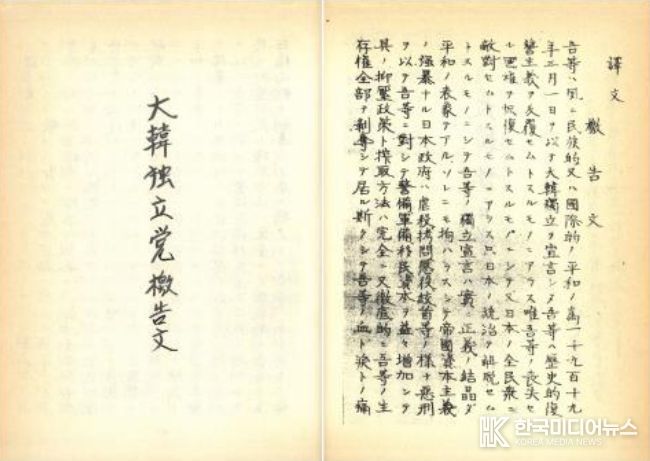 大韓独立党檄告文
譯文
檄告文
吾等ハ夙ニ民族的又ハ國際的ノ平和ノ為一千九百十九
年三月一日ヲ以テ大韓獨立ヲ宣言シタ吾等ハ歴史的復
讐主義ヲ反復セムトスルモノニアラス唯吾等ノ喪失セ
ヲ恢復セムトスルモノニシテ又日本ノ全民衆ニ
敵對セムトスルモノニアラス只日本ノ統治ヲ離脱セム
トスルモノニシテ吾等ノ獨立宣言ハ實ニ正義ノ結晶ダ
平和ノ表象テアルソレニモ拘ハラスシテ帝國資本主義
ノ強暴ナル日本政府ハ虐殺拷問懲役絞首等ノ様々悪刑
ヲ以テ吾等ニ對シテ警備軍備移民資本ヲ益々増加シテ
其ノ抑壓政策ト搾取方法ハ完全ニ又徹底的ニ吾等ノ生
存権全部ヲ剥奪シテ居ル斯クシテ吾等ノ血ト涙トノ痛
한국미디어뉴스
KOREA MEDIA NEWS